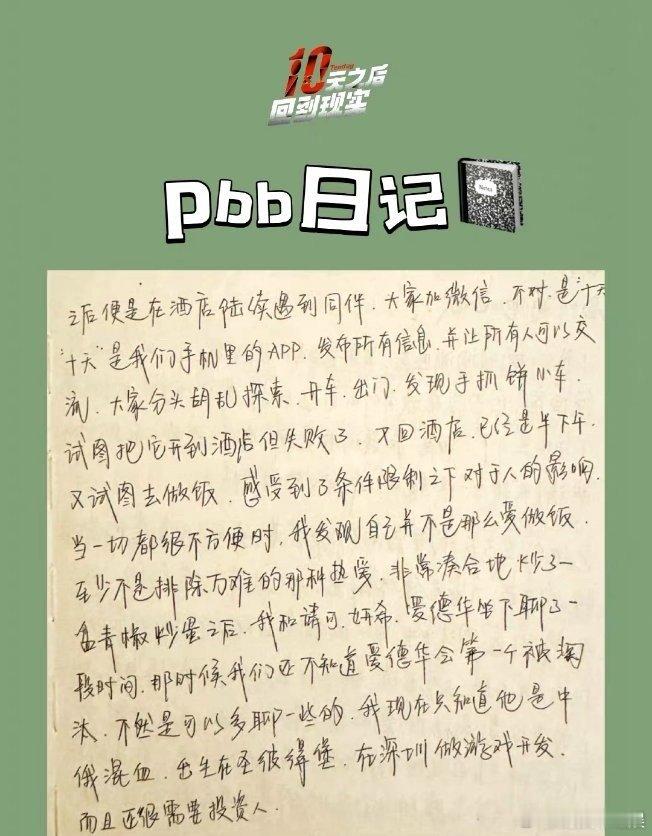 10
Tenday
天之后
回到现实
pbb日记
Notes
之后便是在酒店陆续遇到同伴.大家加微信.不对.是“十天”
“十天”是我们手机里的APP.发布所有信息.并让所有人可以交
流.大家分头胡乱探索.开车.出门.发现手抓饼小车.
试图把它开到酒店但失败了.又回酒店.已经是半下午.
又试图去做饭.感受到了条件限制之下对于人的影响.
当一切都很不方便时.我发现自己并不是那么爱做饭.
至少不是排除万难的那种热爱.非常凑合地炒了一
盒青椒炒蛋之后.我和靖可.妍希.爱德华坐下聊了一
段时间.那时候我们还不知道爱德华会第一个被淘
汰.不然是可以多聊一些的.我现在只知道他是中
俄混血.出生在圣彼得堡.在深圳做游戏开发.
而且还很需要投资人.